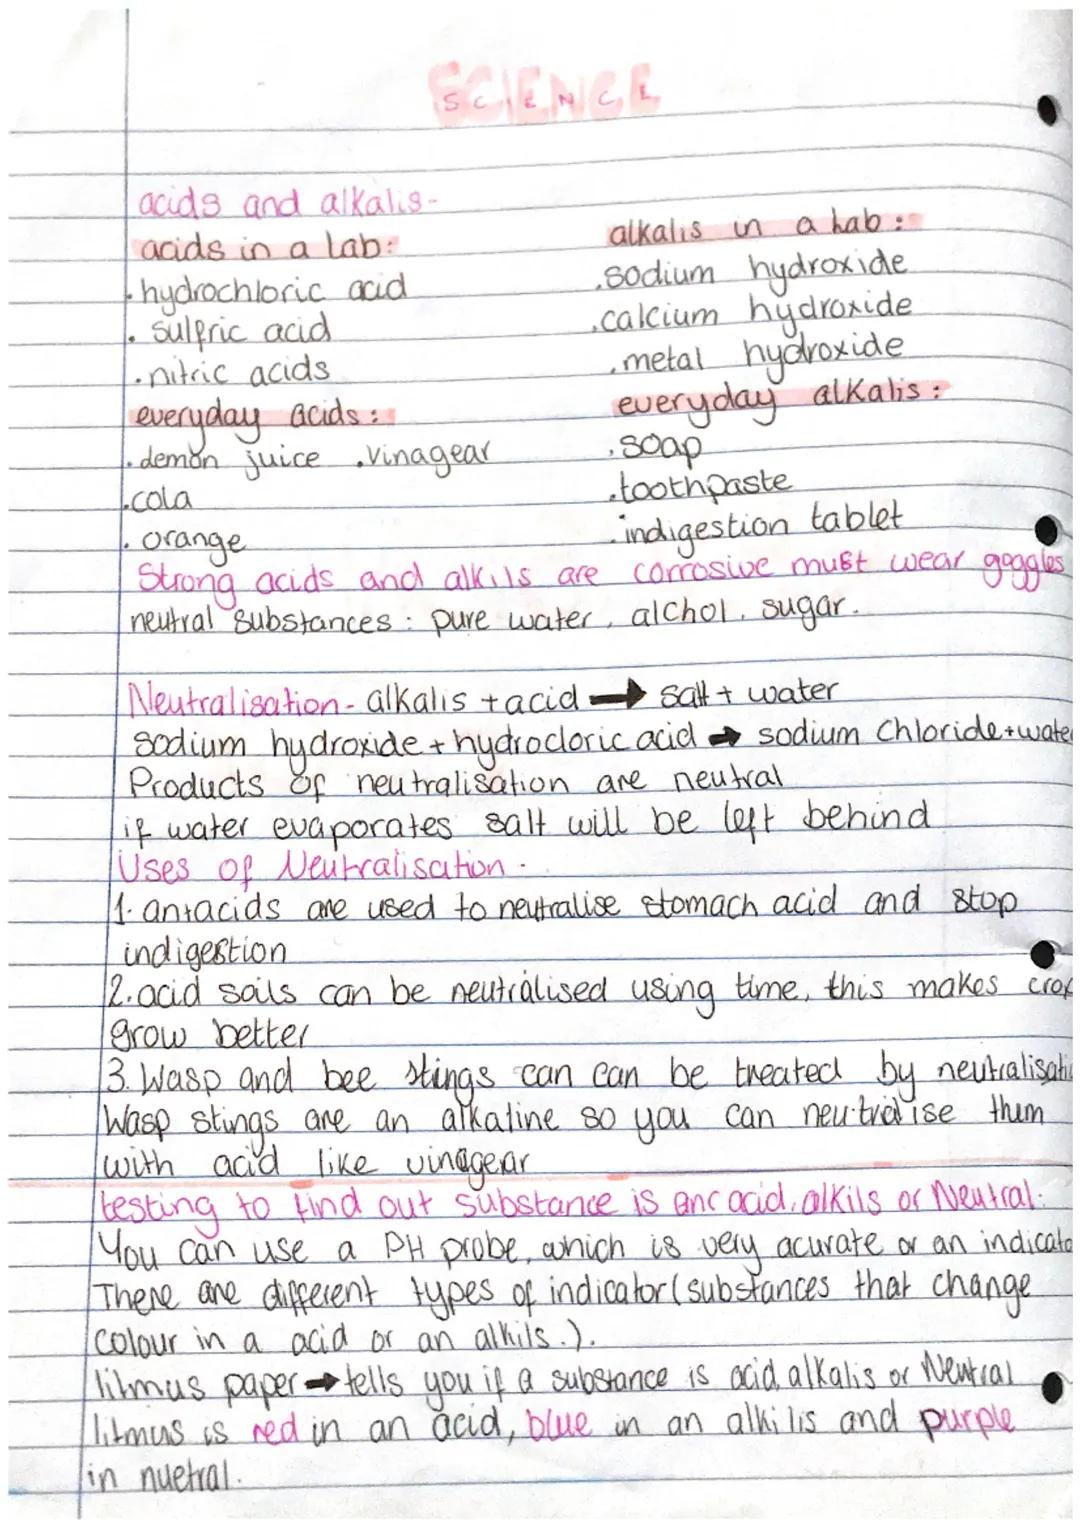 SCIENCE
acids and alkalis-
acids in a lab:
. hydrochloric acid
. sulfric acid
. nitric acids
everyday acids:
. demon juice . vinagear
. cola
. orange
alkalis in a hab:
. sodium hydroxide
. calcium hydroxide
. metal hydroxide
everyday alkalis:
. soap
. toothpaste
. indigestion tablet
Strong acids and alkils are corrosive must wear goggles
neutral substances: pure water, alchol, sugar.
Neutralisation- alkalis + acid → salt + water
sodium hydroxide + hydrocloric acid → sodium Chloride + water
Products of neutralisation are neutral
if water evaporates salt will be left behind
Uses of Neutralisation -
1. antacids are used to neutralise stomach acid and stop
indigestion
2. acid soils can be neutralised using time, this makes crop
grow better
3. Wasp and bee stings can can be treated by neutralisatio
Wasp stings are an alkaline so you can neutralise them
with acid like vinagear
testing to find out substance is anc acid, alkils or Neutral-
You can use a PH probe, which is very acurate or an indicato
There are different types of indicator (substances that change
colour in a acid or an alkils.).
litmus paper → tells you if a substance is acid, alkalis or Neutral
litmus is red in an acid, blue in an alkilis and purple
in nuetral.